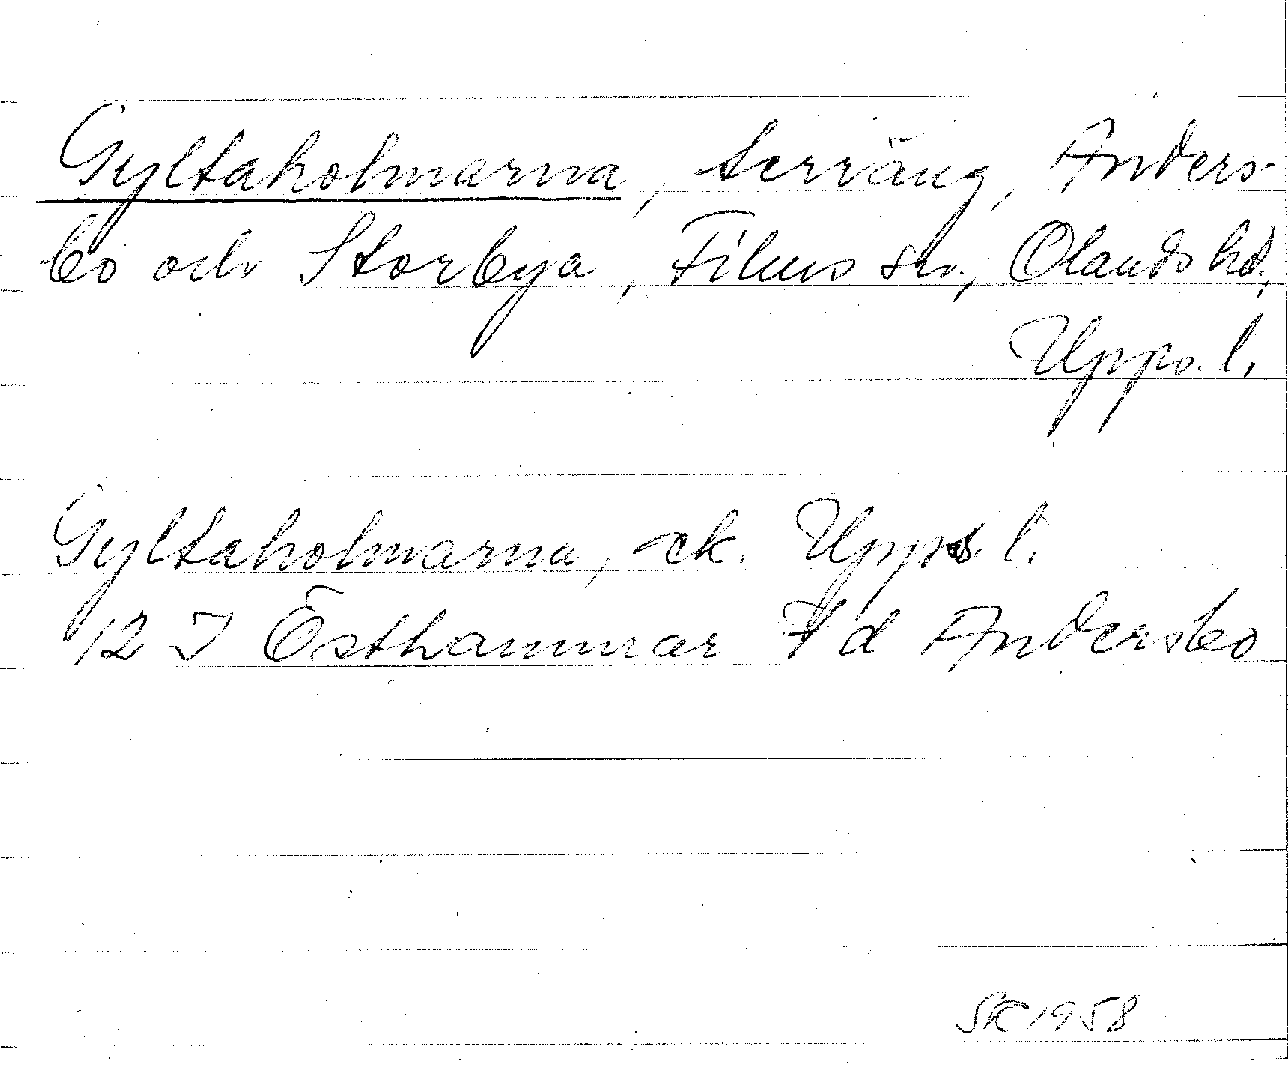 Gyltaholmarna, terräng, Anders-
bo och Storbya, Films sn, Olands hd,
Upps. l.
Gyltaholmarna, ek. Upps. l.
12 I Östhammar 7 d Andersbo
SK 1958